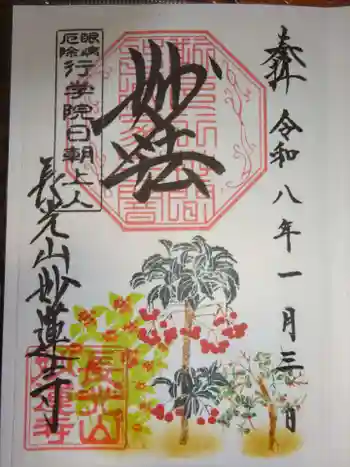 奉拝 令和八年一月三日
妙法
眼病
厄除
行学院日朝上人
長光山妙蓮寺
長光山
妙蓮寺